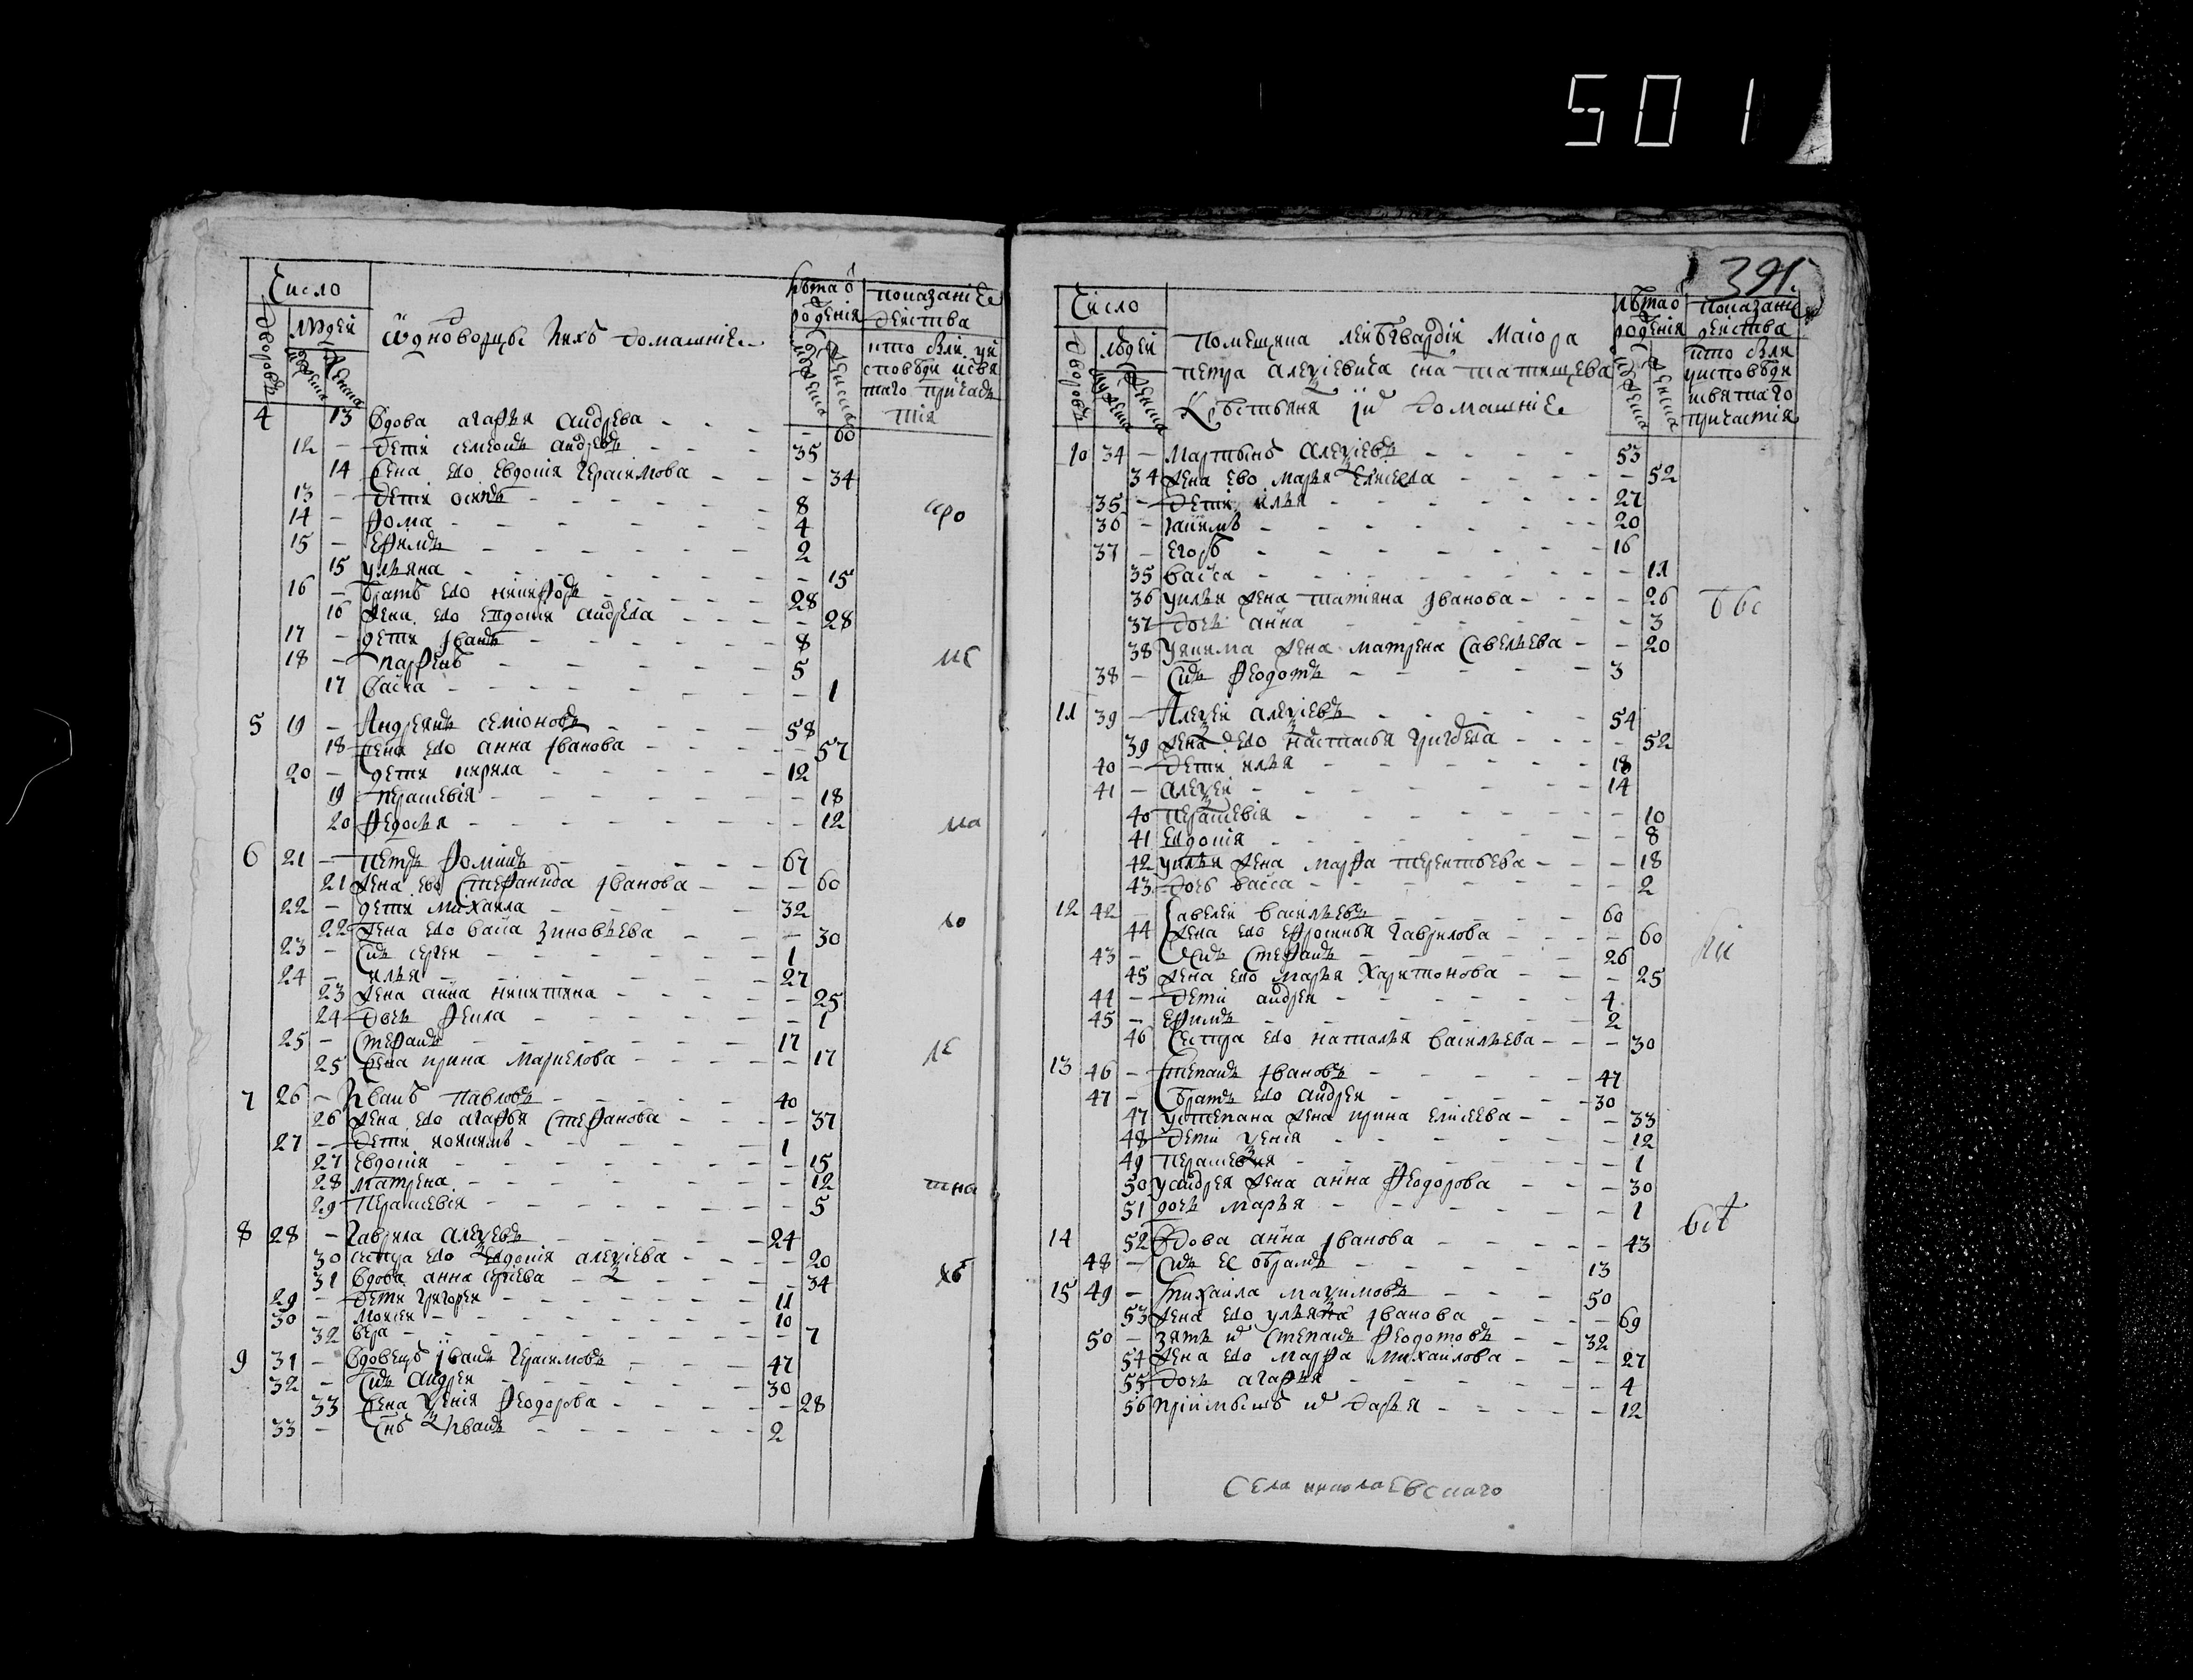 501
Число
Дворовъ
людей
мужеска
женска
Однодворцы и ихъ домашнiе
лѣта ѿ рожденiя
мужеска
женска
показанiе
действа
кто были у и
споведи и свя
таго причас
тiя
4 13 Вдова агафья андрева - 60
12 - дети семенъ андревъ 35
14 жена ево евдокiя герасимова - 34
13 - дети осипъ 8
14 - фома 4
15 - ефимъ 2
15 ульяна - 15
16 - братъ ево никифоръ 28
16 жена ево евдокия андрева - 28
17 - дети иванъ 8
18 - парфенъ 5
17 васса - 1
5 19 - Андреянъ семионовъ 58
18 жена ево анна иванова - 57
20 - дети кирила 12
19 перасковiя - 18
20 федосья - 12
6 21 - петръ фоминъ 67
21 жена ево стефанида иванова - 60
22 - дети михаила 32
22 жена ево васса зиновьева - 30
23 - сынъ сергеи 1
24 - илья 27
23 жена анна никитина - 25
24 дочь фекла - 1
25 - стефанъ 17
25 жена ирина маркелова - 17
7 26 - Иванъ павловъ 40
26 жена ево агафья стефанова - 37
27 - дети иоакимъ 1
27 евдокия - 15
28 матрена - 12
29 перасковiя - 5
8 28 - Гаврила алеѯевъ 24
30 сестра ево евдокiя алеѯiева - 20
31 вдова анна сергiева - 34
29 - дети григореи 11
30 - мокеи 10
32 вера - 7
9 31 - Вдовецъ иванъ герасимовъ 47
32 - сынъ андреи 30
33 жена ѯенiя феодорова - 28
33 - снъ иванъ 2
391
Число
Дворовъ
людей
мужеска
женска
Помещика леибгвардiи маiора
петра алеѯiевича сна татищева
крестьяня и ихъ домашнiе
лѣта ѿ рожденiя
мужеска
женска
показанiе
действа
кто были
у исповеди
и святаго
причастiя
10 34 - Мартынъ алеѯiевъ 53
34 жена ево марья елисеева - 52
35 - дети илья 27
36 - иакимъ 20
37 - егоръ 16
35 васса - 11
36 у ильи жена татiяна иванова - 26
37 дочь анна - 3
38 у якима жена матрена савельева - 20
38 - сынъ феодотъ 3
11 39 - Алеѯеи алеѯiевъ 54
39 жена ево настасья григорева - 52
40 - дети илья 18
41 - алеѯеи 14
40 перасковiя - 10
41 евдокiя - 8
42 у ильи жена марфа терентьева - 18
43 дочь васса - 2
12 42 - Савелеи васильевъ 60
44 жена ево ефросинья гаврилова - 60
43 - сынъ стефанъ 26
45 жена ево марья харитонова - 25
44 - дети андреи 4
45 - ефимъ 2
46 сестра ево наталья васильева - 30
13 46 - Степанъ ивановъ 47
47 - братъ ево андреи 30
47 у степана жена ирина елисеева - 33
48 дети ѯенiя - 12
49 перасковия - 1
50 у андрея жена анна феодорова - 30
51 дочь марья - 1
14 52 Вдова анна иванова - 43
48 - сынъ ее обрамъ 13
15 49 - Михаила маѯимовъ 50
53 жена ево ульяна иванова - 69
50 - зять и степанъ феодотовъ 32
54 жена ево марфа михаилова - 27
55 дочь агафья - 4
56 прiимышъ и дарья - 12
села николаевскаго